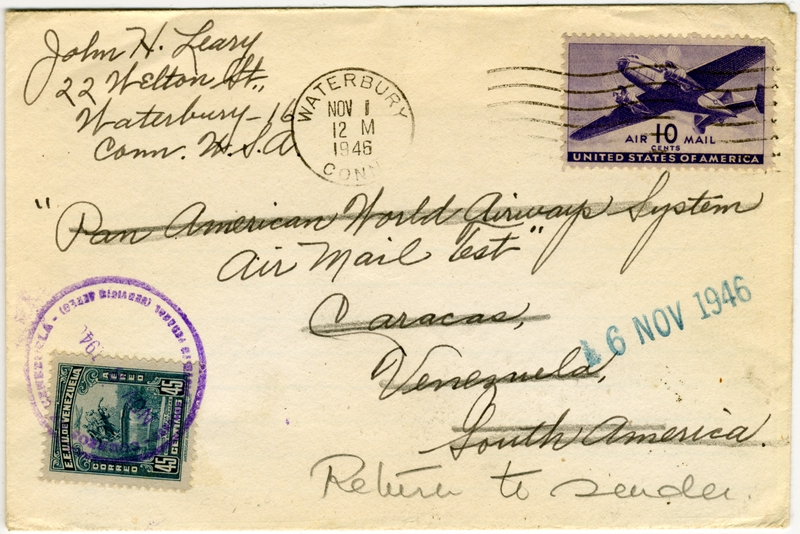 John H. Leary
22 Welton St.,
Waterbury-16
Conn. U.S.A.
WATERBURY
NOV 1
12 M
1946
CONN.
AIR 10 MAIL
CENTS
UNITED STATES OF AMERICA
"Pan American World Airways System
Air Mail Test"
Caracas,
Venezuela,
South America.
6 NOV 1946
Return to sender.
VENEZUELA - (SERVICIO AEREO)
E.E.U.U. DE VENEZUELA
AEREO
45 CENTIMOS 45
CORREO